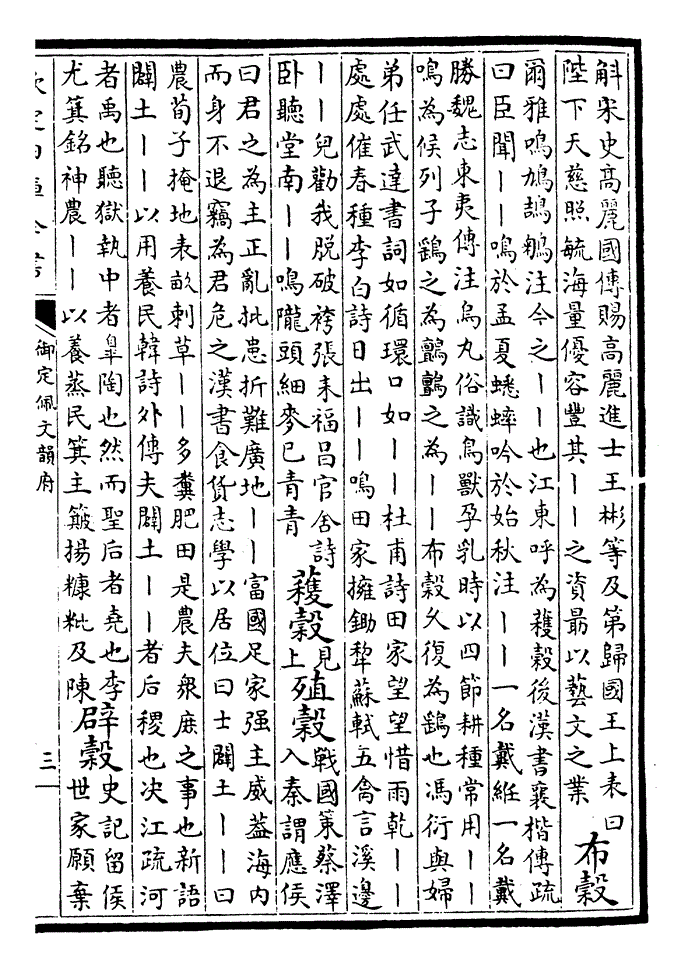 斛宋史高麗國傳賜高麗進士王彬等及第歸國王上表曰
陛下天慈照毓海量優容豐其丨丨之資最以藝文之業
布穀
爾雅鳲鳩鴶鵴注今之丨丨也江東呼為穫穀後漢書襄楷傳疏
曰臣聞丨丨鳴於孟夏蟋蟀吟於始秋注丨丨一名戴絍一名戴
勝魏志東夷傳注烏丸俗識鳥獸孕乳時以四節耕種常用丨丨
鳴為候列子鷂之為鸇鸇之為丨丨布穀久復為鷂也馮衍與婦
弟任武達書詞如循環口如丨丨杜甫詩田家望望惜雨乾丨丨
處處催春種李白詩日出丨丨鳴田家擁鋤犂蘇軾五禽言溪邊
丨丨兒勸我脱破袴張耒福昌官舍詩
卧聽堂南丨丨鳴隴頭細麥已青青
穫穀
見
上
殖穀
戰國策蔡澤
入秦謂應侯
曰君之為主正亂批患折難廣地丨丨富國足家强主威葢海内
而身不退竊為君危之漢書食貨志學以居位曰士闢土丨丨曰
農荀子掩地表畝刺草丨丨多糞肥田是農夫衆庶之事也新語
闢土丨丨以用養民韓詩外傳夫闢土丨丨者后稷也决江疏河
者禹也聽獄執中者臯陶也然而聖后者堯也李
尤箕銘神農丨丨以養蒸民箕主簸揚糠粃及陳
辟穀
史記留侯
世家願棄
御定佩文韻府
三